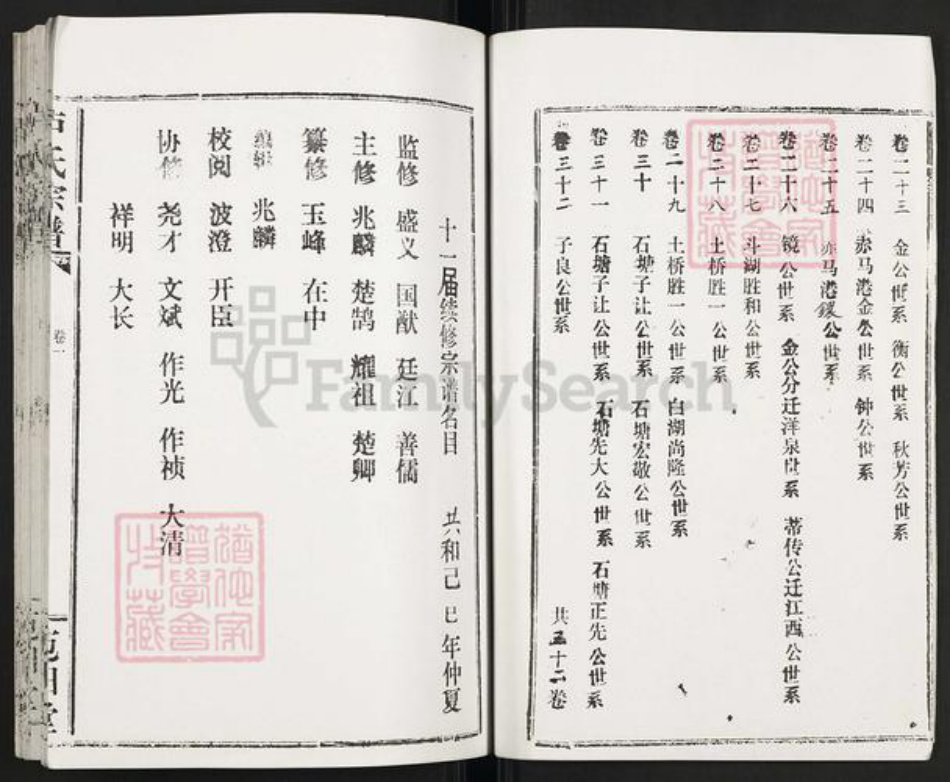 卷二十三 金公世系 衡公世系 秋芳公世系
卷二十四 赤马港金公世系 钟公世系
卷二十五 赤马港镙公世系
卷二十六 镜公世系 金公分迁洋泉世系 蒂传公迁江西公世系
卷二十七 斗湖胜和公世系
卷二十八 土桥胜一公世系
卷二十九 土桥胜一公世系 白湖尚隆公世系
卷三十 石塘子让公世系 石塘宏敬公世系
卷三十一 石塘子让公世系 石塘先大公世系 石塘正先公世系
卷三十二 子良公世系 共三十二卷
十一届续修宗谱名目 共和己巳年仲夏
监修 盛义 国猷 廷江 善儒
主修 兆麟 楚鹄 耀祖 楚卿
纂修 玉峰 在中
编辑 兆麟
校阅 波澄 开臣
协修 尧才 文斌 作光 作祯 大清
祥明 大长
氏宗谱
卷一
FamilySearch